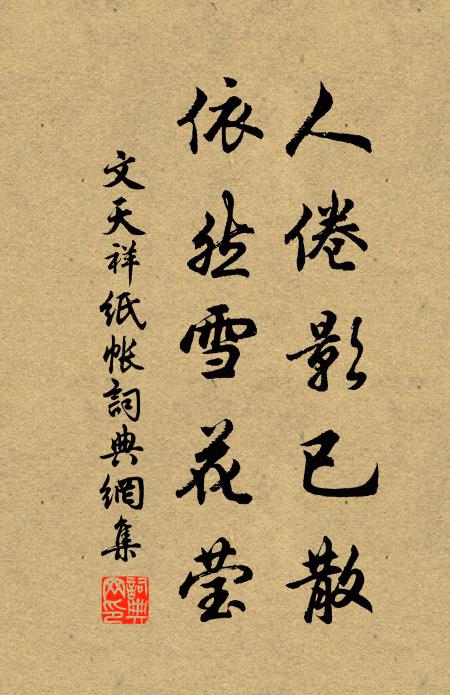 人倦影已散
依然雪花莹
文天祥紙帳詞典網集
詞典网印